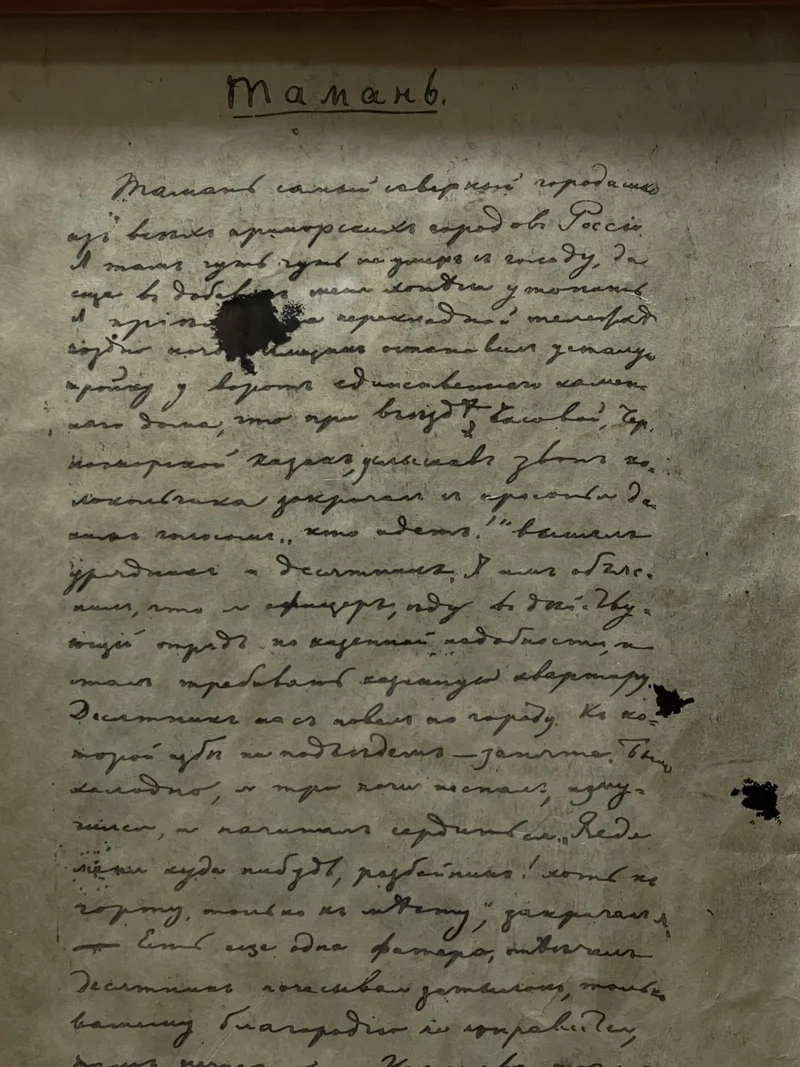 Тамань.
Тамань самый скверный городишко
изъ всѣхъ приморскихъ городовъ Россіи.
Я тамъ чуть чуть не умеръ съ голоду, да
еще въ добавокъ меня хотѣли утопить
Я на перекладной телегѣ
поздно ямщикъ остановилъ усталую
тройку у воротъ единственнаго камен-
наго дома, что при въѣздѣ. Часовой, Чер-
номорской казакъ, услышавъ звонъ ко-
локольчика закричалъ съ просонья ди-
кимъ голосомъ „кто идетъ!“ вышелъ
урядникъ и десятникъ. Я имъ объяс-
нилъ, что я офицеръ, ѣду въ дѣйству-
ющій отрядъ по казенной надобности, и
сталъ требовать казенную квартиру.
Десятникъ насъ повелъ по городу. Къ ко-
торой избѣ ни подъѣдемъ — занята. Было
холодно, я три ночи неспалъ, изму-
чился, и начиналъ сердиться. „Веди
меня куда нибудь, разбойникъ! хоть къ
чорту, только къ мѣсту“, закричалъ я
— Есть еще одна фатера, отвѣчалъ
десятникъ почесывая затылокъ, только
вашему благородію не понравится,